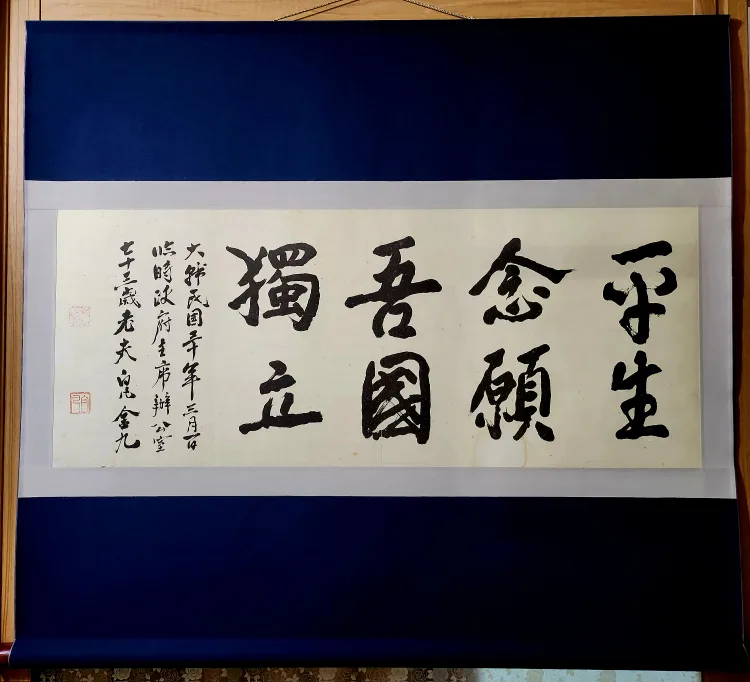 平生
念願
吾國
獨立
大韓民国三十年三月一日
臨時政府主席辦公室
七十三歲老夫白凡金九